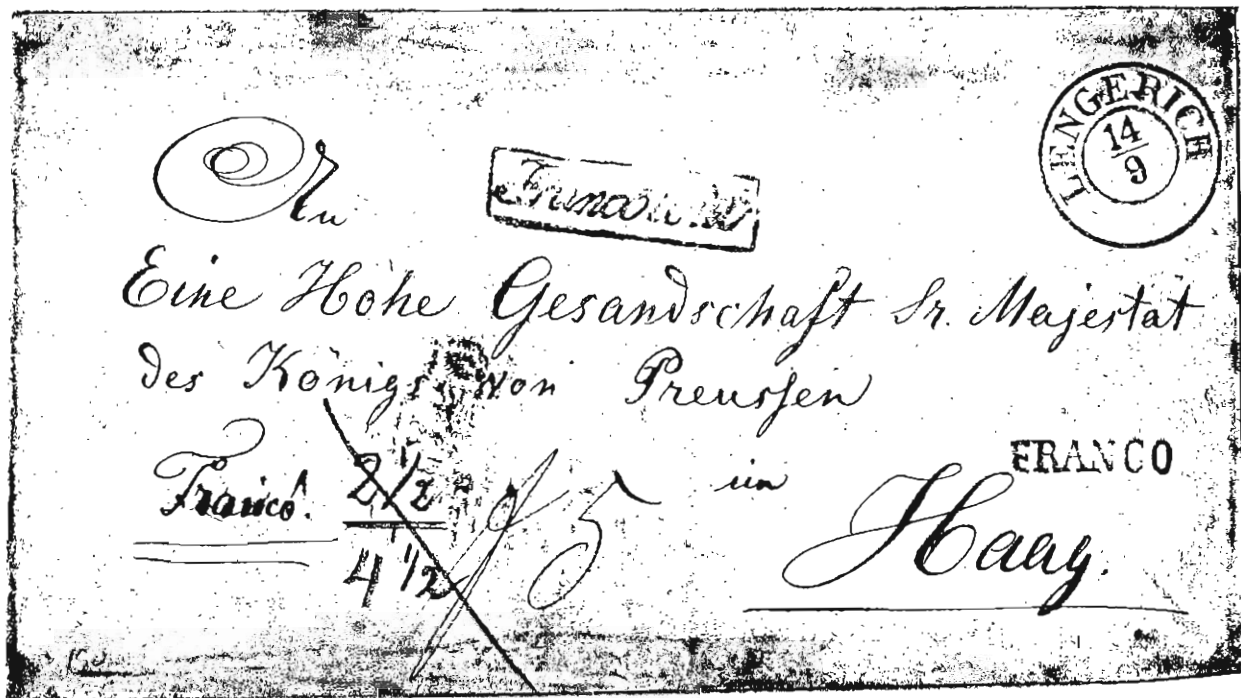 LENGERICH
14
9
An
Eine Hohe Gesandschaft Sr. Majestät
des Königs von Preussen
FRANCO
Franco!
2 1/2
4 1/2
5
im
Haag.